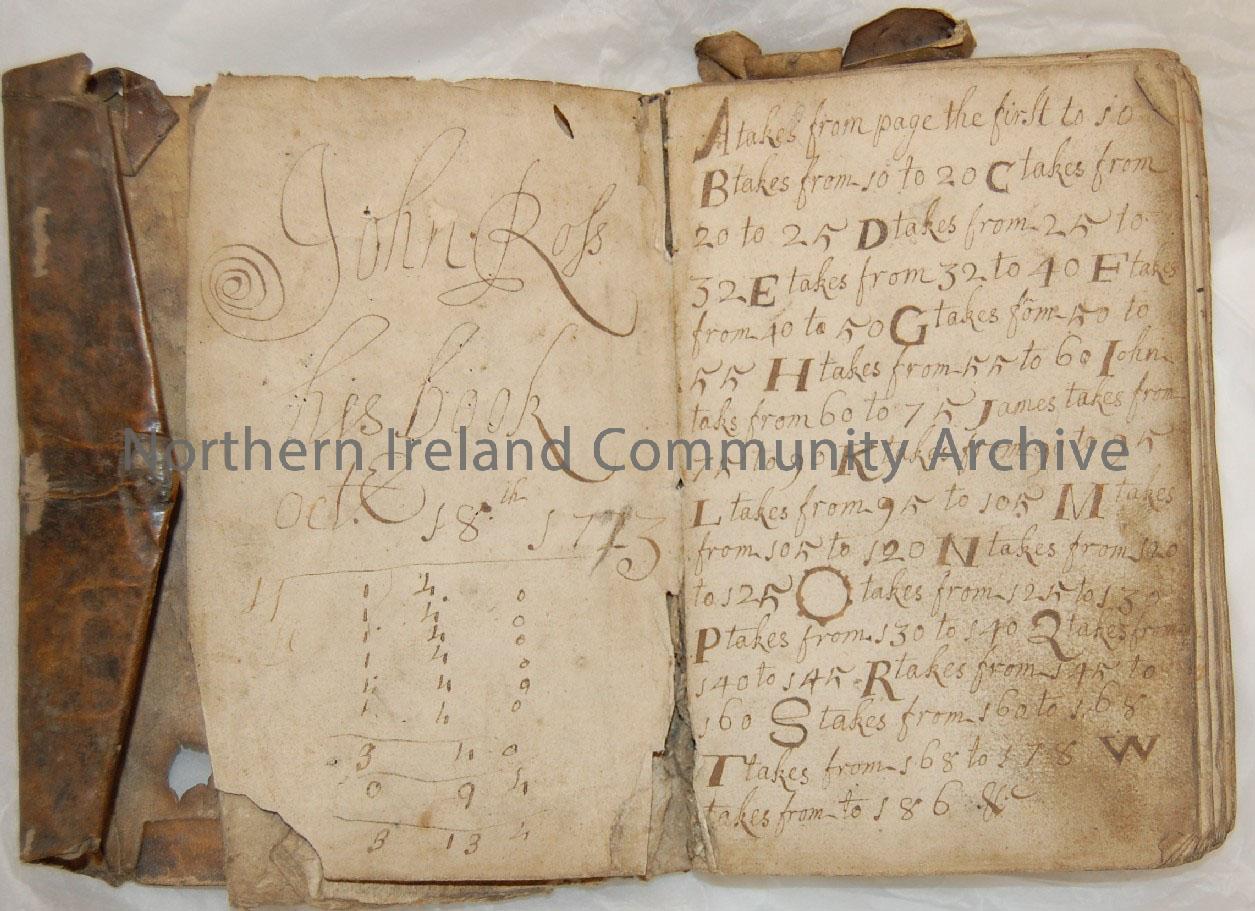 John Ross
his book
Oct. 18th 1713
1 4 0
1 4 0
1 4 0
1 4 0
1 4 0
1 4 0
3 4 0
0 9 4
3 13 4
A takes from page the first to 10
B takes from 10 to 20 C takes from
20 to 25 D takes from 25 to
32 E takes from 32 to 40 F takes
from 40 to 50 G takes fom 50 to
55 H takes from 55 to 60 John
taks from 60 to 75 James takes from
75 to 90 K takes from to 95
L takes from 95 to 105 M takes
from 105 to 120 N takes from 120
to 125 O takes from 125 to 130
P takes from 130 to 140 Q takes from
140 to 145 R takes from 145 to
160 S takes from 160 to 168
T takes from 168 to 178 W
takes from to 186 &c
Northern Ireland Community Archive